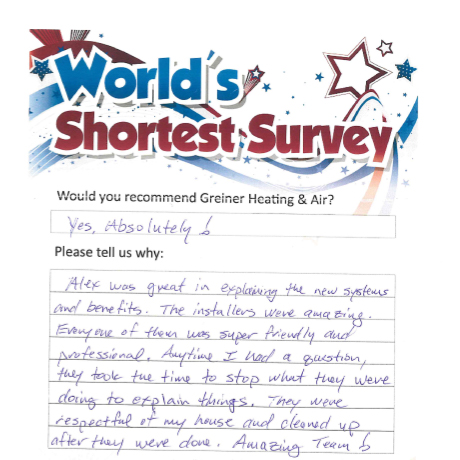 World's
Shortest Survey
Would you recommend Greiner Heating & Air?
Yes, Absolutely!
Please tell us why:
Alex was great in explaining the new systems
and benefits. The installers were amazing.
Everyone of them was super friendly and
professional. Anytime I had a question,
they took the time to stop what they were
doing to explain things. They were
respectful of my house and cleaned up
after they were done. Amazing Team!